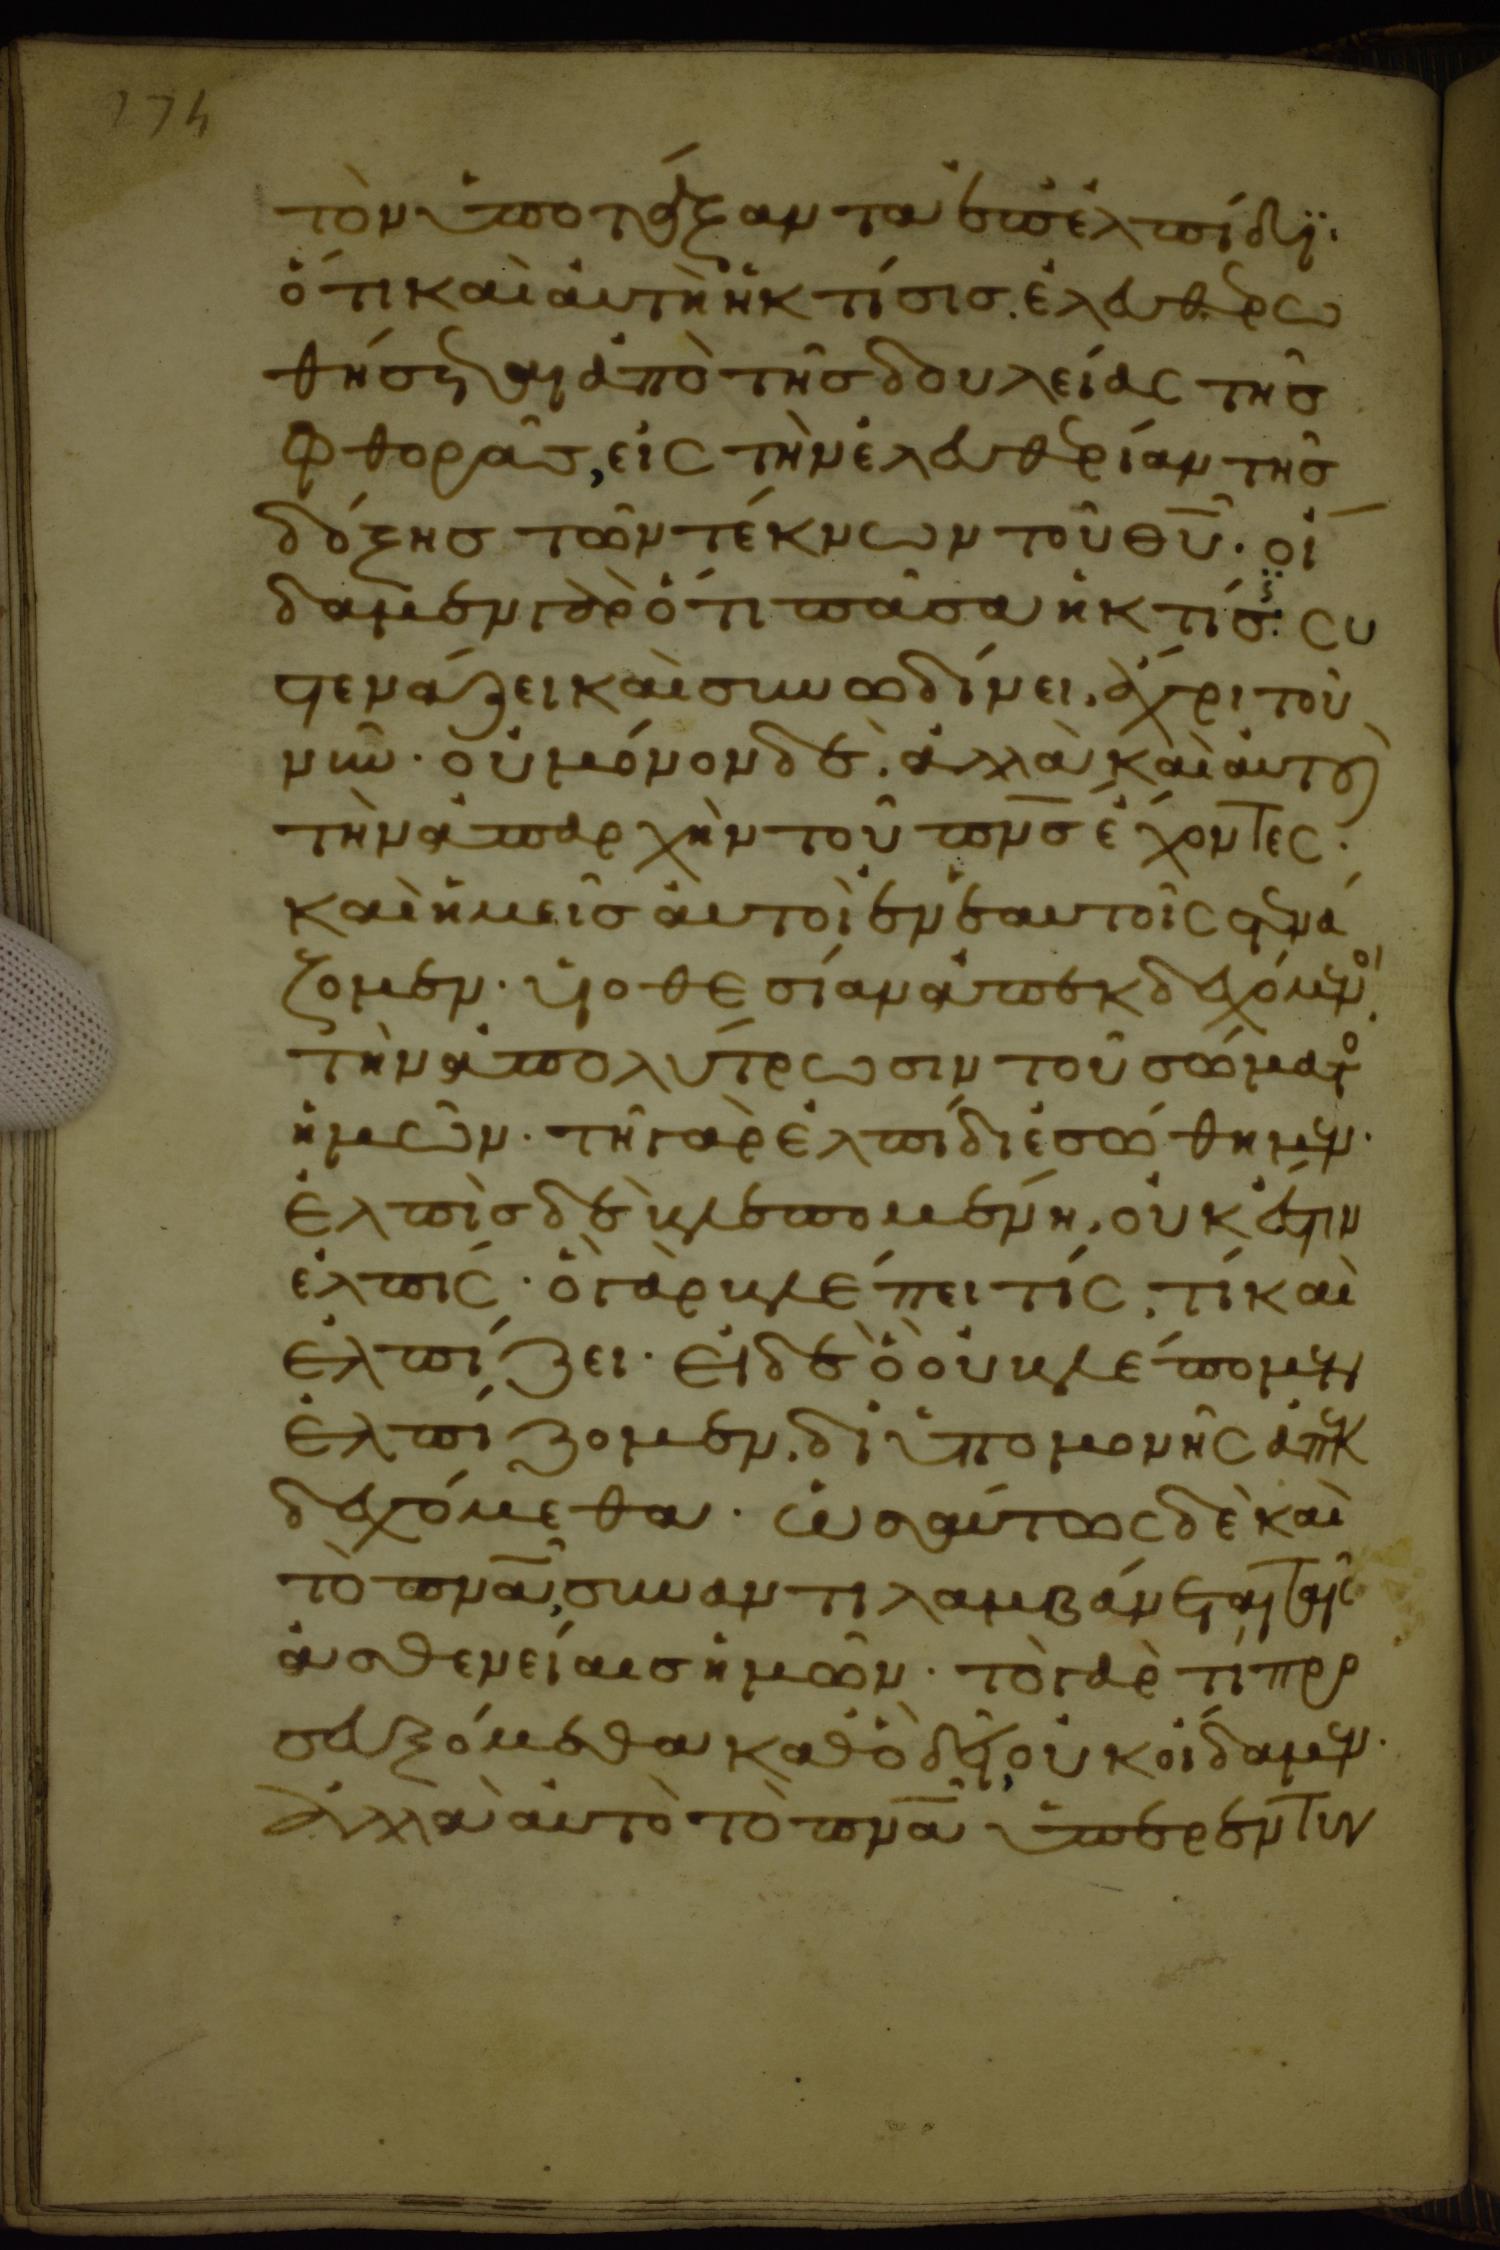 174
τὸν ὑποτάξαντα ἐπ ἐλπίδι·
ὅτι καὶ αὐτὴ ἡ κτίσις. ἐλευθερω
θήσεται ἀπὸ τῆς δουλείας τῆς
φθορᾶς, εἰς τὴν ἐλευθερίαν τῆς
δόξης τῶν τέκνων τοῦ θυ̅. οἴ
δαμεν γὰρ ὅτι πᾶσα ἡ κτίσις συ
στενάζει καὶ συνωδίνει. ἄχρι τοῦ
νῦν. οὐ μόνον δὲ. ἀλλὰ καὶ αὐτοὶ
τὴν ἀπαρχὴν τοῦ πν̅σ ἔχοντες.
καὶ ἡμεῖς αὐτοὶ ἐν ἑαυτοῖς στενά
ζομεν. υἱοθεσίαν ἀπεκδεχόμενοι.
τὴν ἀπολύτρωσιν τοῦ σώματος
ἡμῶν. τῇ γὰρ ἐλπίδι ἐσώθημεν.
ἐλπὶς δὲ βλεπομένη. οὐκ ἔστιν
ἐλπίς. ὃ γὰρ βλέπει τίς. τί καὶ
ἐλπίζει. εἰ δὲ ὃ οὐ βλέπομεν
ἐλπίζομεν. δι ὑπομονῆς ἀπεκ
δεχόμεθα. ὡσαύτως δὲ καὶ
τὸ πνα̅, συναντιλαμβάνεται ταῖς
ἀσθενείαις ἡμῶν. τὸ γὰρ τί προ
σευξόμεθα καθὸ δεῖ, οὐκ οἴδαμεν.
ἀλλὰ αὐτὸ τὸ πνα̅ ὑπερεντυγ